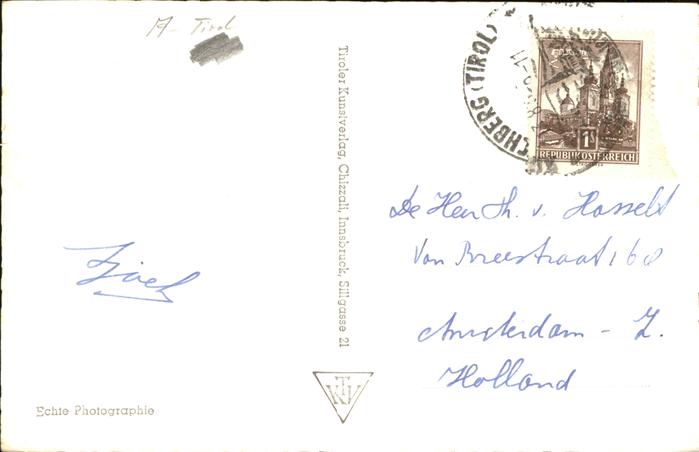 A - Tirol
KIRCHBERG (TIROL)
1S
REPUBLIK ÖSTERREICH
Tiroler Kunstverlag, Chizzali, Innsbruck, Sillgasse 21
De Heer Th. v. Hasselt
Van Breestraat 168
Amsterdam - Z.
Holland
TKV
Echte Photographie